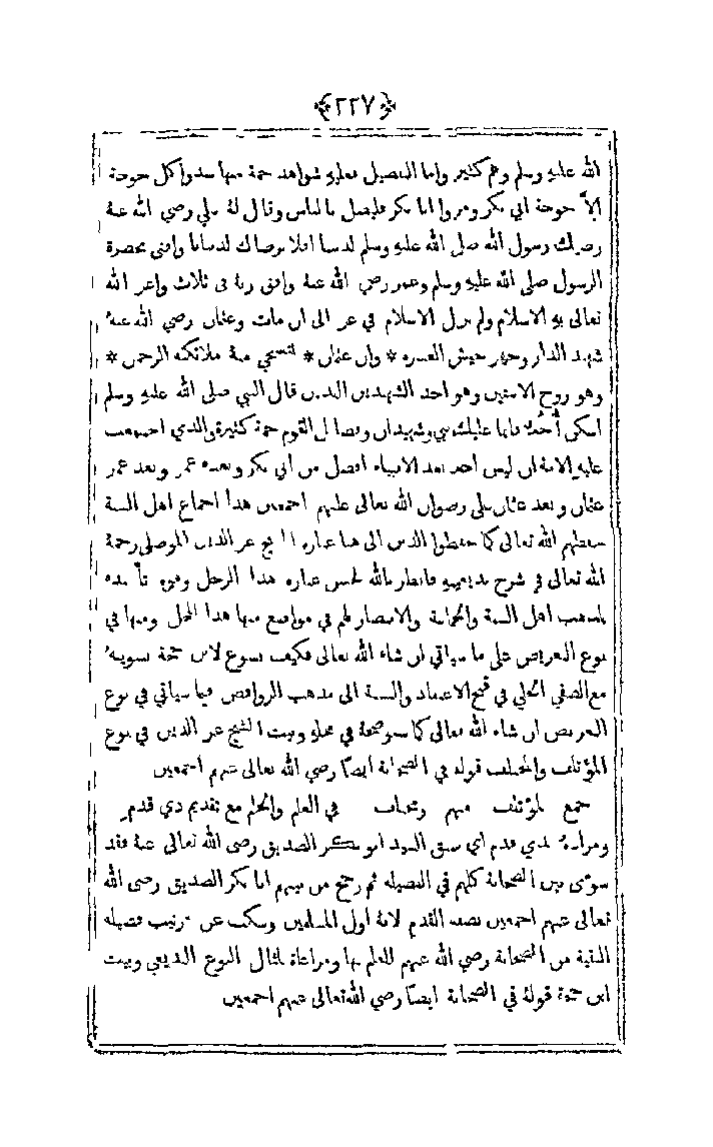 ﴿٢٢٧﴾
الله عليه وسلم وهم كثير واما التفصيل فعليه شواهد جمة منها سدوا كل خوخة
الا خوخة ابي بكر ومروا ابا بكر فليصل بالناس وقال له علي رضي الله عنه
رضيك رسول الله صلى الله عليه وسلم لديننا افلا نرضاك لدنيانا وافتى بحضرة
الرسول صلى الله عليه وسلم وعمر رضي الله عنه وافق ربه في ثلاث واعز الله
تعالى به الاسلام ولم يزل الاسلام في عز الى ان مات وعثمان رضي الله عنه
شهيد الدار وجهز جيش العسره * وان عثمان * لتستحي منه ملائكة الرحمن *
وهو زوج الابنتين وهو احد الشهيدين الذين قال النبي صلى الله عليه وسلم
اسكن أُحُد فانما عليك نبي وشهيدان وفضائل القوم جمة كثيرة والذي اجتمعت
عليه الامة ان ليس احد بعد الانبياء افضل من ابي بكر وبعده عمر وبعد عمر
عثمان وبعد عثمان علي رضوان الله تعالى عليهم اجمعين هذا اجماع اهل السنة
حفظهم الله تعالى كما حفظوا الدين الى هنا عبارة الشيخ عز الدين الموصلي رحمه
الله تعالى في شرح بديعيته فانظر بالله لحسن عبارة هذا الرجل وقوة تأييده
لمذهب اهل السنة والجماعة والانتصار لهم في مواضع منها هذا المحل ومنها في
نوع التعريض على ما سياتي ان شاء الله تعالى فكيف يسوغ لابن حجة تسويته
مع الصفي الحلي في قبح الاعتقاد والنسبة الى مذهب الروافض فيما سياتي في نوع
التعريض ان شاء الله تعالى كما سنوضحه في محله وبيت الشيخ عز الدين في نوع
المؤتلف والمختلف قوله في الصحابة ايضًا رضي الله تعالى عنهم اجمعين
جمع لمؤتلف منهم ومختلف في العلم والحلم مع تقديم ذي قدم
ومراده بذي قدم اي سبق السيد ابو بكر الصديق رضي الله تعالى عنه فقد
سوّى بين الصحابة كلهم في الفضيلة ثم رجح من بينهم ابا بكر الصديق رضي الله
تعالى عنهم اجمعين بصفة القدم لانه اول المسلمين وسكت عن ترتيب فضيلة
البقية من الصحابة رضي الله عنهم للعلم بها ومراعاة لمثال النوع البديعي وبيت
ابن حجة قوله في الصحابة ايضًا رضي الله تعالى عنهم اجمعين